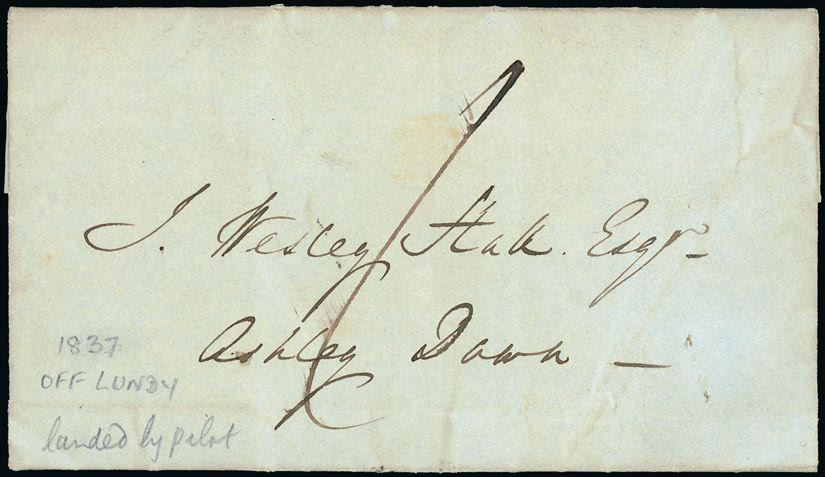 J. Wesley Hall. Esqr-
Ashley Down —
1837
OFF LUNDY
landed by pilot